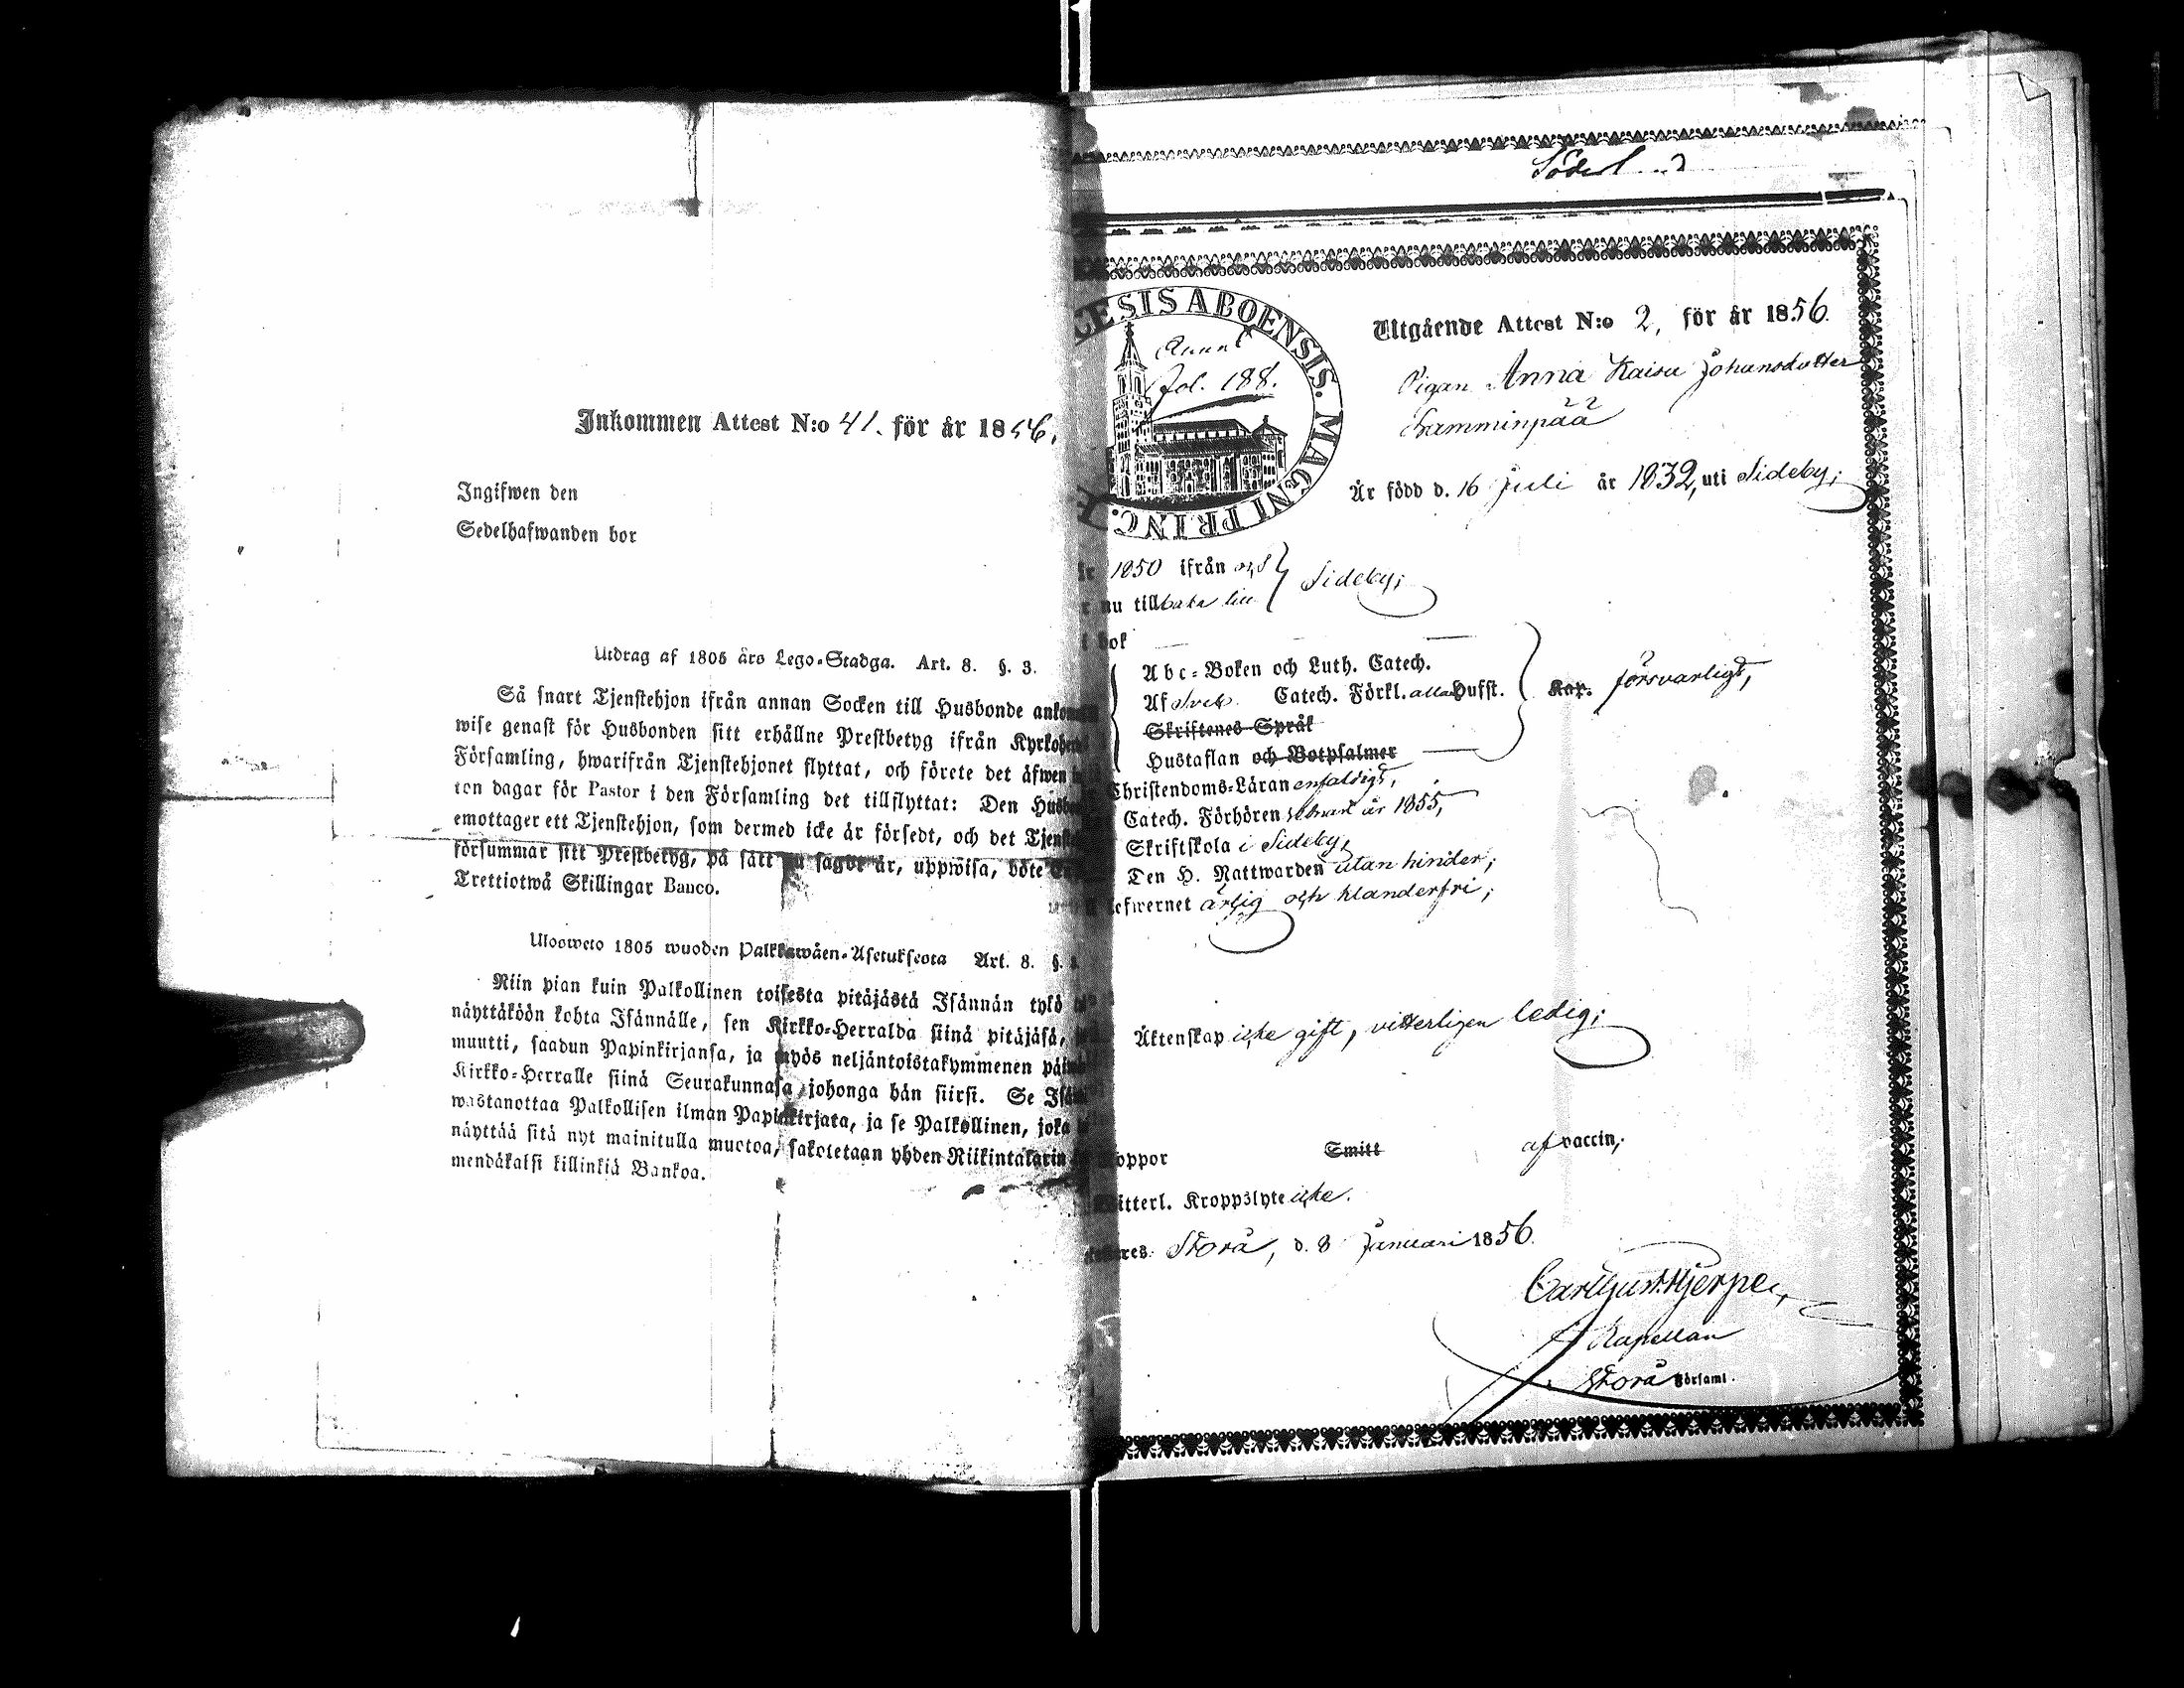 Inkommen Attest N:o 41. för år 1856.
Ingifwen den
Sedelhafwanden bor
Utdrag af 1805 års Lego-Stadga. Art. 8. §. 3.
Så snart Tjenstehjon ifrån annan Socken till Husbonde
wise genast för Husbonden sitt erhållne Prestbetyg ifrån
Församling, hwarifrån Tjenstehjonet flyttat, och förete det äfwen
ton dagar för Pastor i den Församling det tillflyttat: Den
emottager ett Tjenstehjon, som dermed icke är försedt, och det
försummar sitt Prestbetyg, på sätt nu sagdt är, uppwisa, böte
Trettiotwå Skillingar Banco.
Ulosweto 1805 wuoden Palkkawäen-Asetuksesta Art. 8. §.
Niin pian kuin Palkollinen toisesta pitäjästä Isännän tykö
näyttäköön kohta Isännälle, sen Kirkko-Herralda siinä pitäjäsä,
muutti, saadun Papinkirjansa, ja myös neljäntoistakymmenen
Kirkko-Herralle siinä Seurakunnasa johonga hän siirsi. Se
wastanottaa Palkollisen ilman Papinkirjata, ja se Palkollinen, joka
näyttää sitä nyt mainitulla muotoa, sakotetaan yhden Riikintalarin
mendäkaksi killinkiä Bankoa.
CESIS ABOENSIS. MAGNI PRINC.
Fol. 188.
Utgående Attest N:o 2, för år 1856.
Pigan Anna Kaisa Johansdotter
Är född d. 16 Juli år 1832, uti Sideby;
1850 ifrån och
Sideby;
nu tillbaka till
bok
Abc-Boken och Luth. Catech.
Af Catech. Förkl. alla Hufst.
Kap. försvarligt,
Skriftenes Språk
Hustaflan och Botpsalmer
Christendoms-Läran enfaldigt,
Catech. Förhören senast år 1855,
Skriftskola i Sideby,
Den H. Nattwarden utan hinder;
lefwernet ärlig och klanderfri;
Äktenskap icke gift, vitterligen ledig;
Koppor Smitt af vaccin;
Witterl. Kroppslyte icke.
Storå, d. 8 Januari 1856.
Kapellan
Storå Församl.